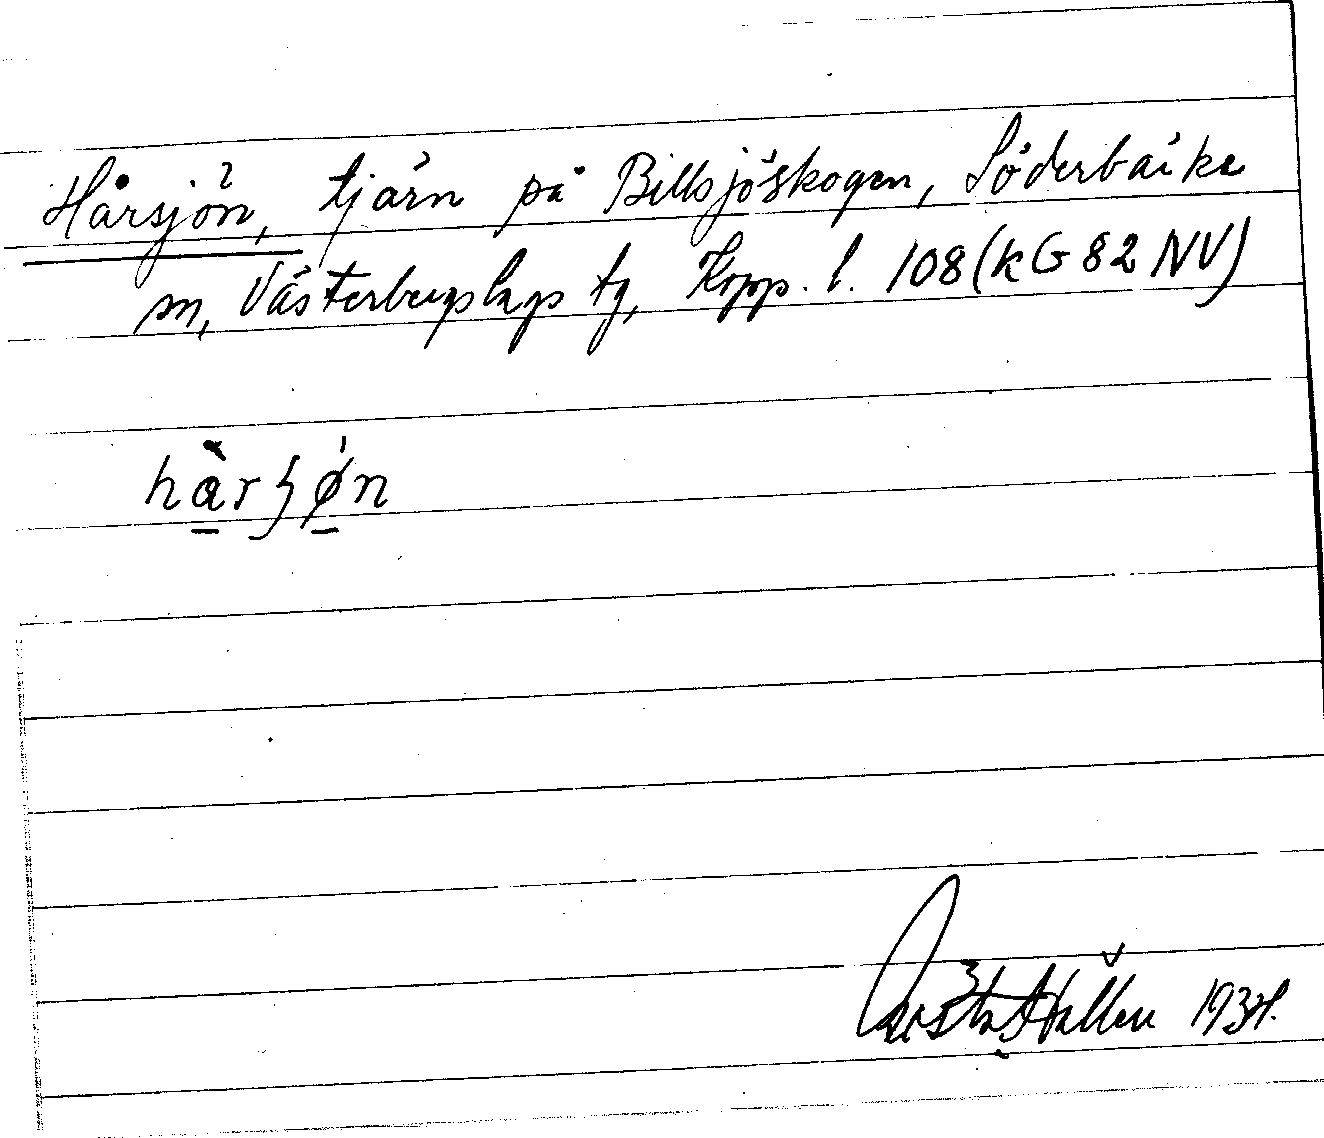 Hårsjön, tjärn på Billsjöskogen, Söderbärke
sn, Västerbergslags tg, Kopp. l. 108 (k G 82 NV)
hàrʃø̀n
Gösta Hallén 1934.